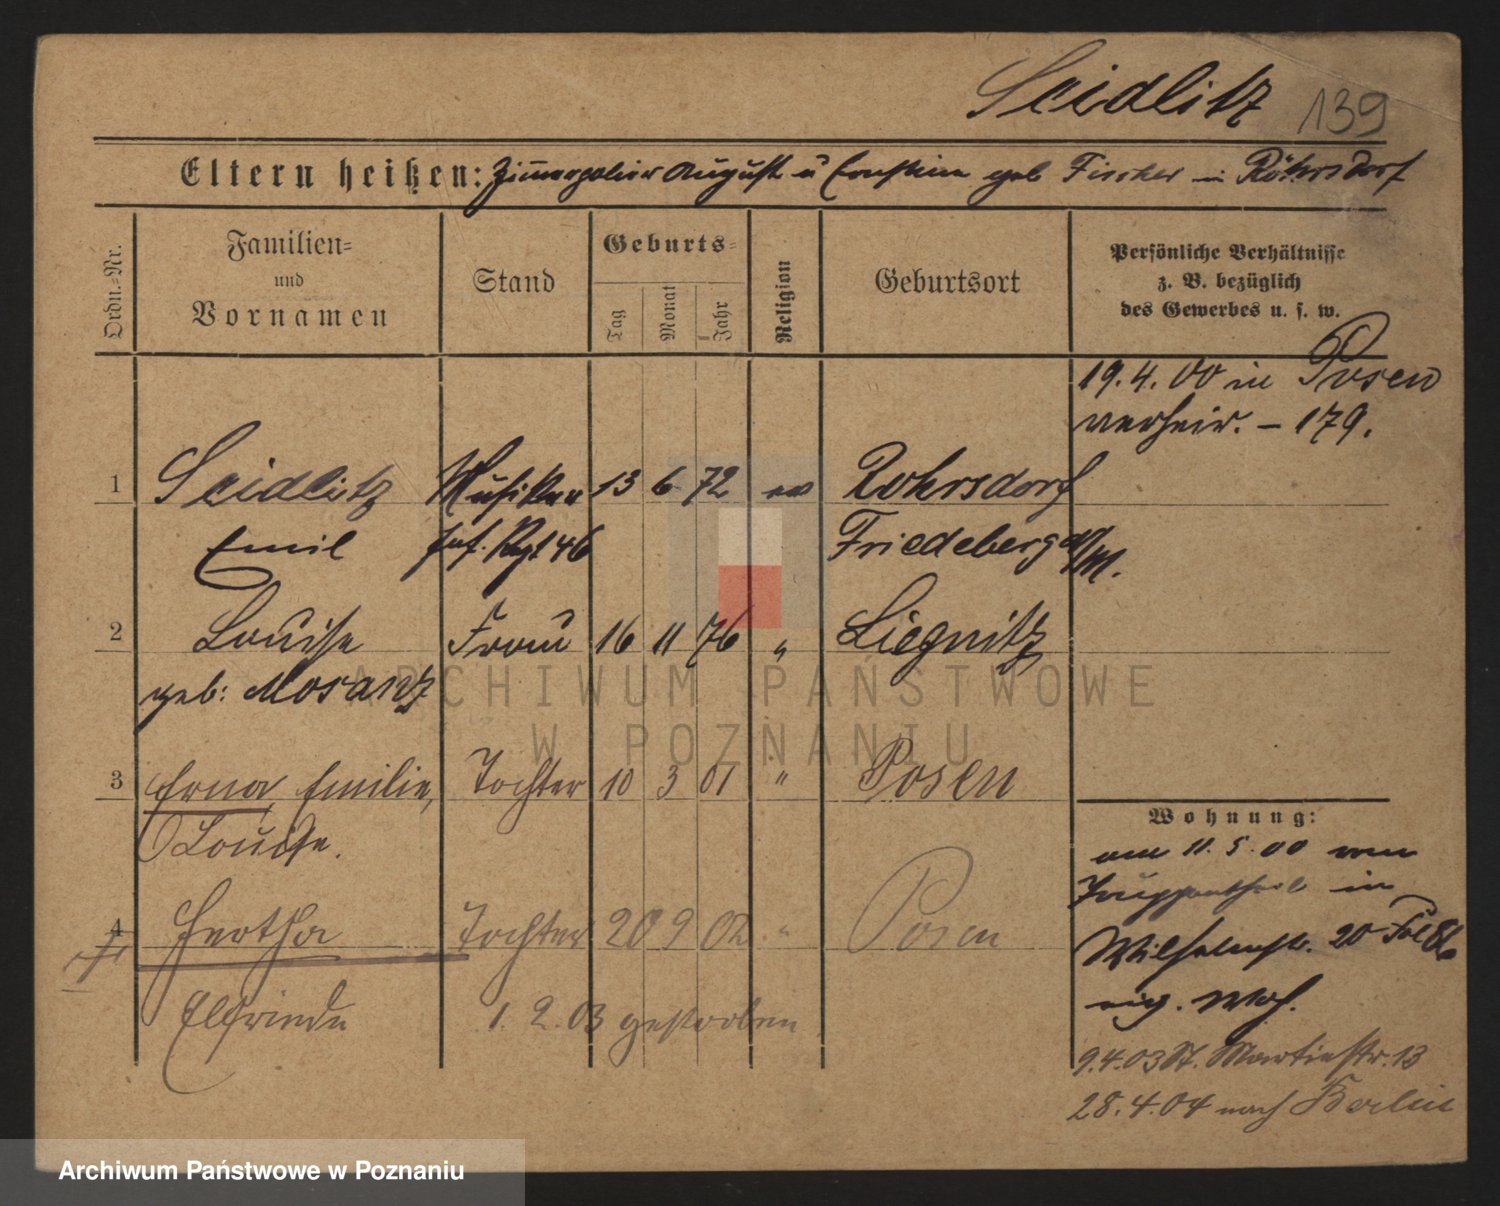 Seidlitz 139
Eltern heißen: Zimmerpolier August u Ernstine geb Fischer in Röhrsdorf
Ordn.-Nr.
Familien-
und
Vornamen
Stand
Geburts-
Tag
Monat
Jahr
Religion
Geburtsort
Persönliche Verhältnisse
z. B. bezüglich
des Gewerbes u. s. w.
19.4.00 in Posen
verheir. – 179.
1 Seidlitz Musiker 13 6 72 ev Rohrsdorf
Emil Inf. Rgt 46 Friedeberg
2 Louise Frau 16 11 76 " Liegnitz
geb: Mosanz
3 Erna Emilie, Tochter 10 3 01 " Posen
Louise.
4 Hertha Tochter 20 9 02 " Posen
Elfriede 1. 2. 03 gestorben
Wohnung:
am 11. 5. 00 vom
Truppentheil in
Wilhelmstr. 20
eig. Woh.
9.4.03 St. Martinstr. 13
28.4.04 nach Berlin
ARCHIWUM PAŃSTWOWE
W POZNANIU
Archiwum Państwowe w Poznaniu